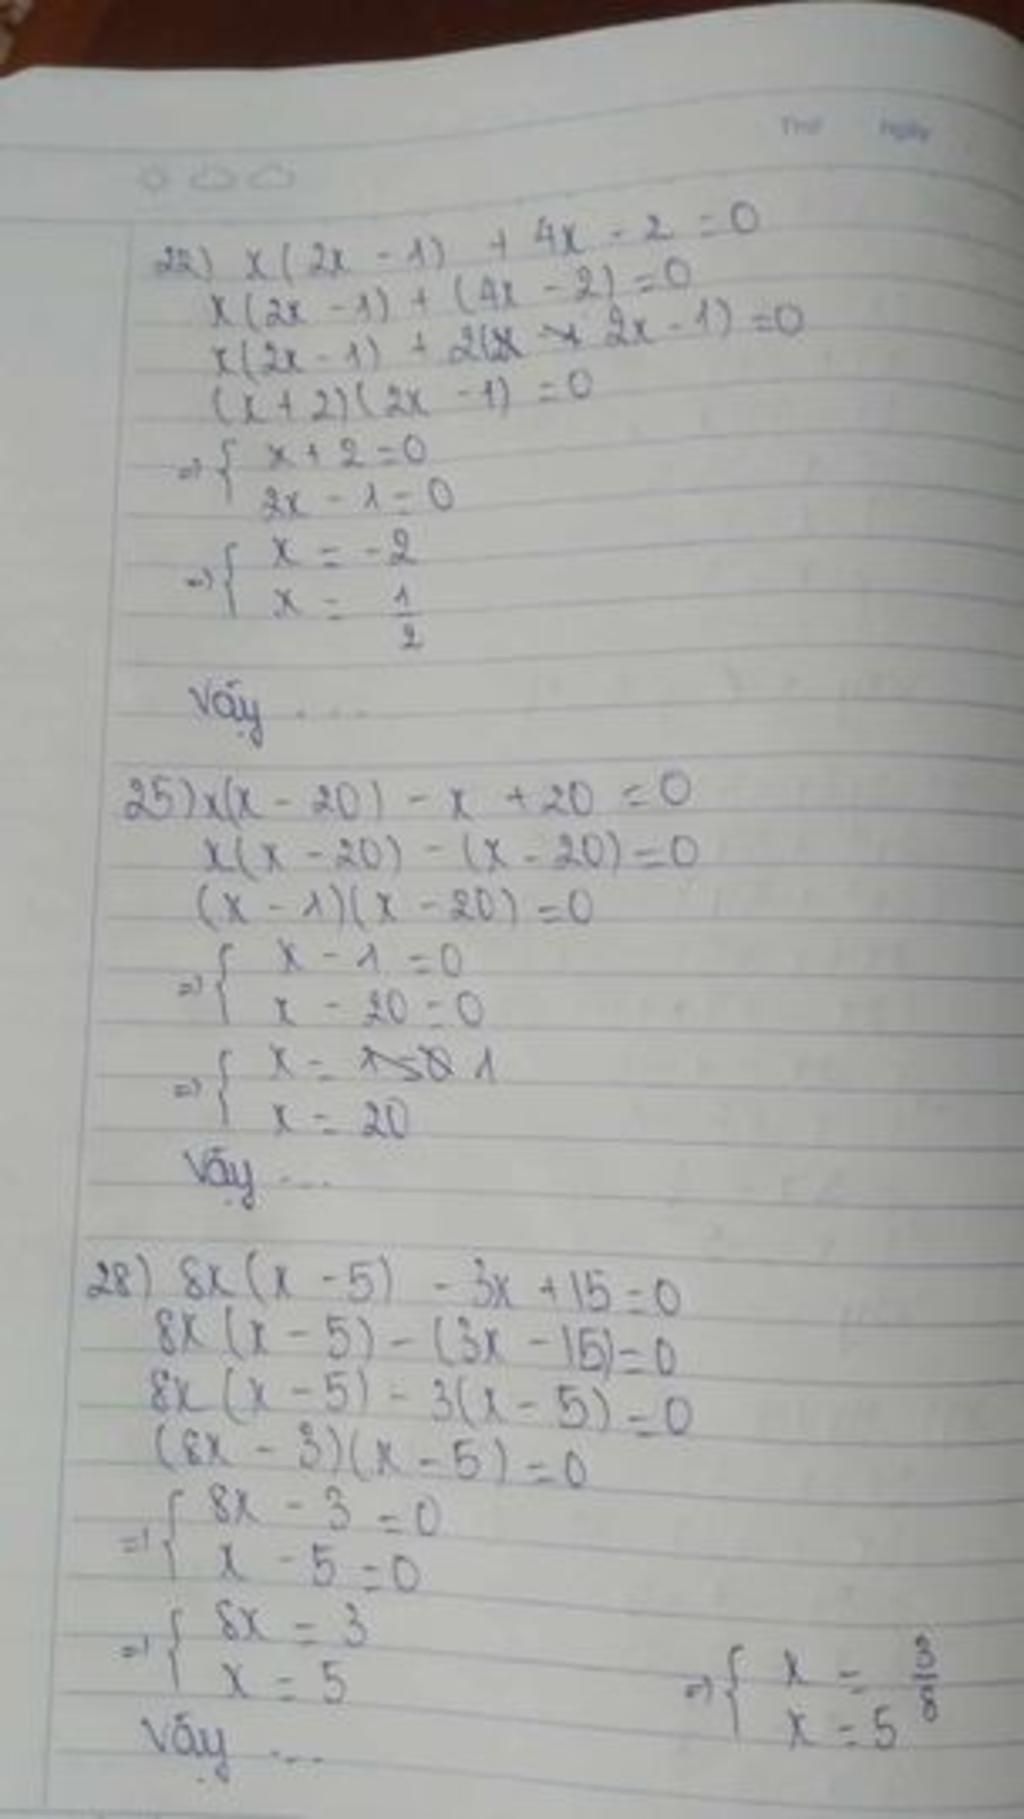 Thứ Ngày
22) x(2x - 1) + 4x - 2 = 0
x(2x - 1) + (4x - 2) = 0
x(2x - 1) + 2(2x - 1) = 0
(x + 2)(2x - 1) = 0
=> { x + 2 = 0
2x - 1 = 0
=> { x = -2
x = 1/2
Vậy ...
25) x(x - 20) - x + 20 = 0
x(x - 20) - (x - 20) = 0
(x - 1)(x - 20) = 0
=> { x - 1 = 0
x - 20 = 0
=> { x = 1
x = 20
Vậy ...
28) 8x(x - 5) - 3x + 15 = 0
8x(x - 5) - (3x - 15) = 0
8x(x - 5) - 3(x - 5) = 0
(8x - 3)(x - 5) = 0
=> { 8x - 3 = 0
x - 5 = 0
=> { 8x = 3
x = 5
=> { x = 3/8
x = 5
Vậy ...